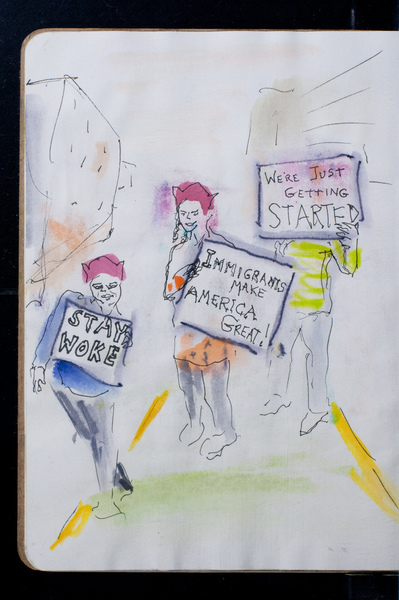 WE'RE JUST
GETTING
STARTED
IMMIGRANTS
MAKE
AMERICA
GREAT!
STAY
WOKE